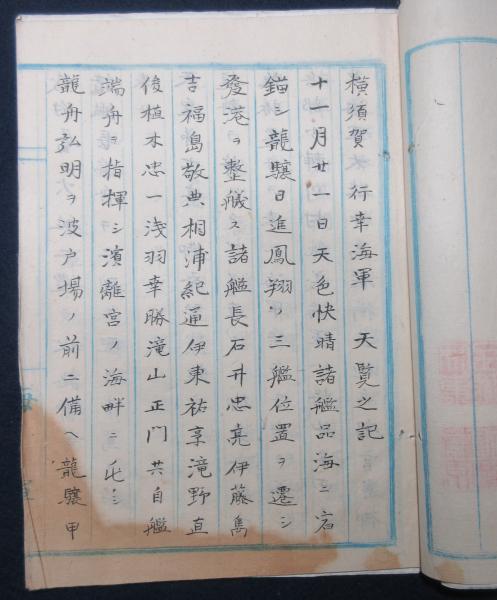 横須賀 行幸海軍 天覧之記
十一月廿一日天色快晴諸艦品海ニ宿
錨シ龍驤日進鳳翔ノ三艦位置ヲ遷シ
發港ヲ整艤ス諸艦長石井忠亮伊藤雋
吉福島敬典相浦紀通伊東祐亨滝野直
俊植木忠一浅羽幸勝滝山正門共自艦
端舟ヲ指揮シ濱離宮ノ海畔ニ
龍舟弘明ヲ波戸場ノ前ニ備ヘ龍驤甲